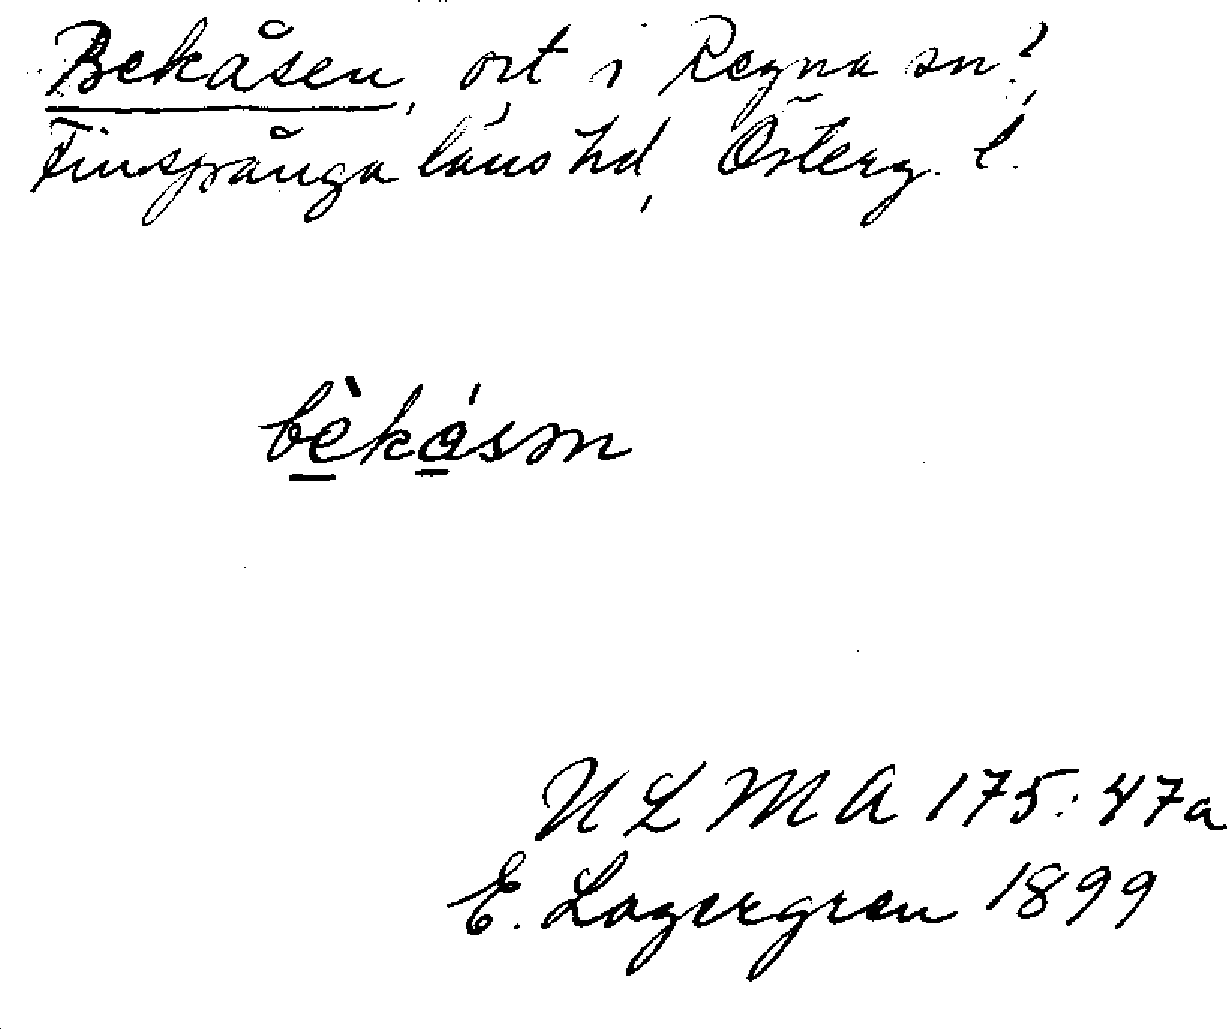 Bekåsen, ort i Regna sn?,
Finspånga läns hd, Österg. l.
bèkåsən
ULMA 175:47a
E. Lagergren 1899